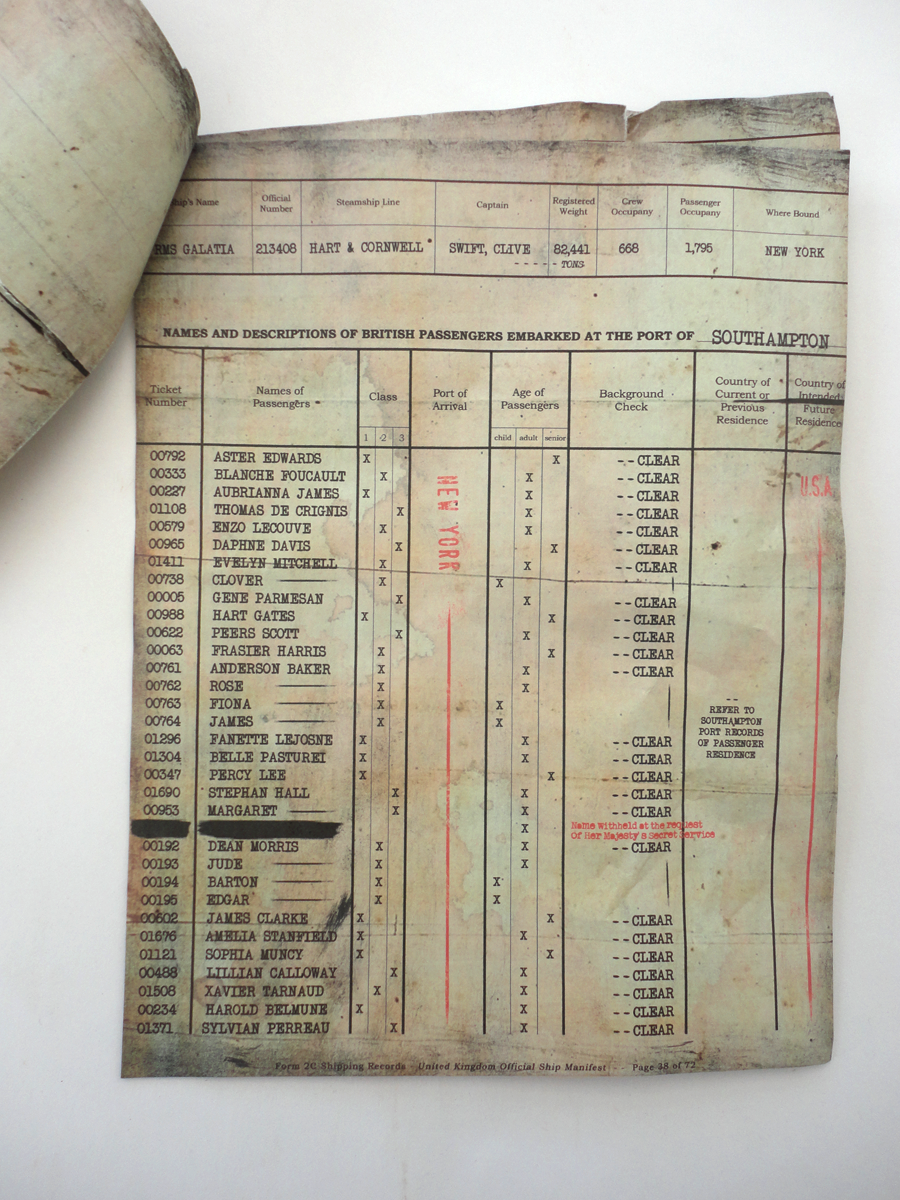 Ship's Name Official Number Steamship Line Captain Registered Weight Crew Occupany Passenger Occupany Where Bound
RMS GALATIA 213408 HART & CORNWELL SWIFT, CLIVE 82,441 668 1,795 NEW YORK
- - - - - TONS
NAMES AND DESCRIPTIONS OF BRITISH PASSENGERS EMBARKED AT THE PORT OF SOUTHAMPTON
Ticket Number Names of Passengers Class Port of Arrival Age of Passengers Background Check Country of Current or Previous Residence Country of Intended Future Residence
1 2 3 child adult senior
00792 ASTER EDWARDS X X --CLEAR
00333 BLANCHE FOUCAULT X X --CLEAR
00227 AUBRIANNA JAMES X X --CLEAR
01108 THOMAS DE CRIGNIS X X --CLEAR
00579 ENZO LECOUVE X X --CLEAR
00965 DAPHNE DAVIS X X --CLEAR
01411 EVELYN MITCHELL X X --CLEAR
00738 CLOVER X X
00005 GENE PARMESAN X X --CLEAR
00988 HART GATES X X --CLEAR
00622 PEERS SCOTT X X --CLEAR
00063 FRASIER HARRIS X X --CLEAR
00761 ANDERSON BAKER X X --CLEAR
00762 ROSE X X
00763 FIONA X X
00764 JAMES X X
01296 FANETTE LEJOSNE X X --CLEAR
01304 BELLE PASTUREI X X --CLEAR
00347 PERCY LEE X X --CLEAR
01690 STEPHAN HALL X X --CLEAR
00953 MARGARET X X --CLEAR
X Name withheld at the request
Of Her Majesty's Secret Service
00192 DEAN MORRIS X X --CLEAR
00193 JUDE X X
00194 BARTON X X
00195 EDGAR X X
00602 JAMES CLARKE X X --CLEAR
01676 AMELIA STANFIELD X X --CLEAR
01121 SOPHIA MUNCY X X --CLEAR
00488 LILLIAN CALLOWAY X X --CLEAR
01508 XAVIER TARNAUD X X --CLEAR
00234 HAROLD BELMUNE X X --CLEAR
01371 SYLVIAN PERREAU X X --CLEAR
NEW YORK
--
REFER TO
SOUTHAMPTON
PORT RECORDS
OF PASSENGER
RESIDENCE
U.S.A
Form 2C Shipping Records United Kingdom Official Ship Manifest - - Page 38 of 72